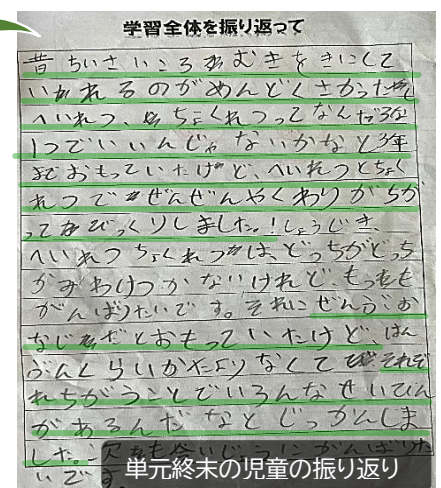 学習全体を振り返って
昔ちいさいころむきをきにして
いれるのがめんどくさかった
へいれつ、ちょくれつってなんだろな
1つでいいんじゃないかなと3年
までおもっていたけど、へいれつとちょく
れつでぜんぜんやくわりがちが
ってびっくりしました。!しょうじき、
へいれつちょくれつは、どっちがどっち
かみわけつかないけれど、もっと
がんばりたいです。それにぜんぶお
なじだとおもっていたけど、はん
ぶんくらいかたよりなくて それぞ
れちがうことでいろんなせいしつ
があるんだなとじっかんしま
した。 がんばりた
いです。
単元終末の児童の振り返り